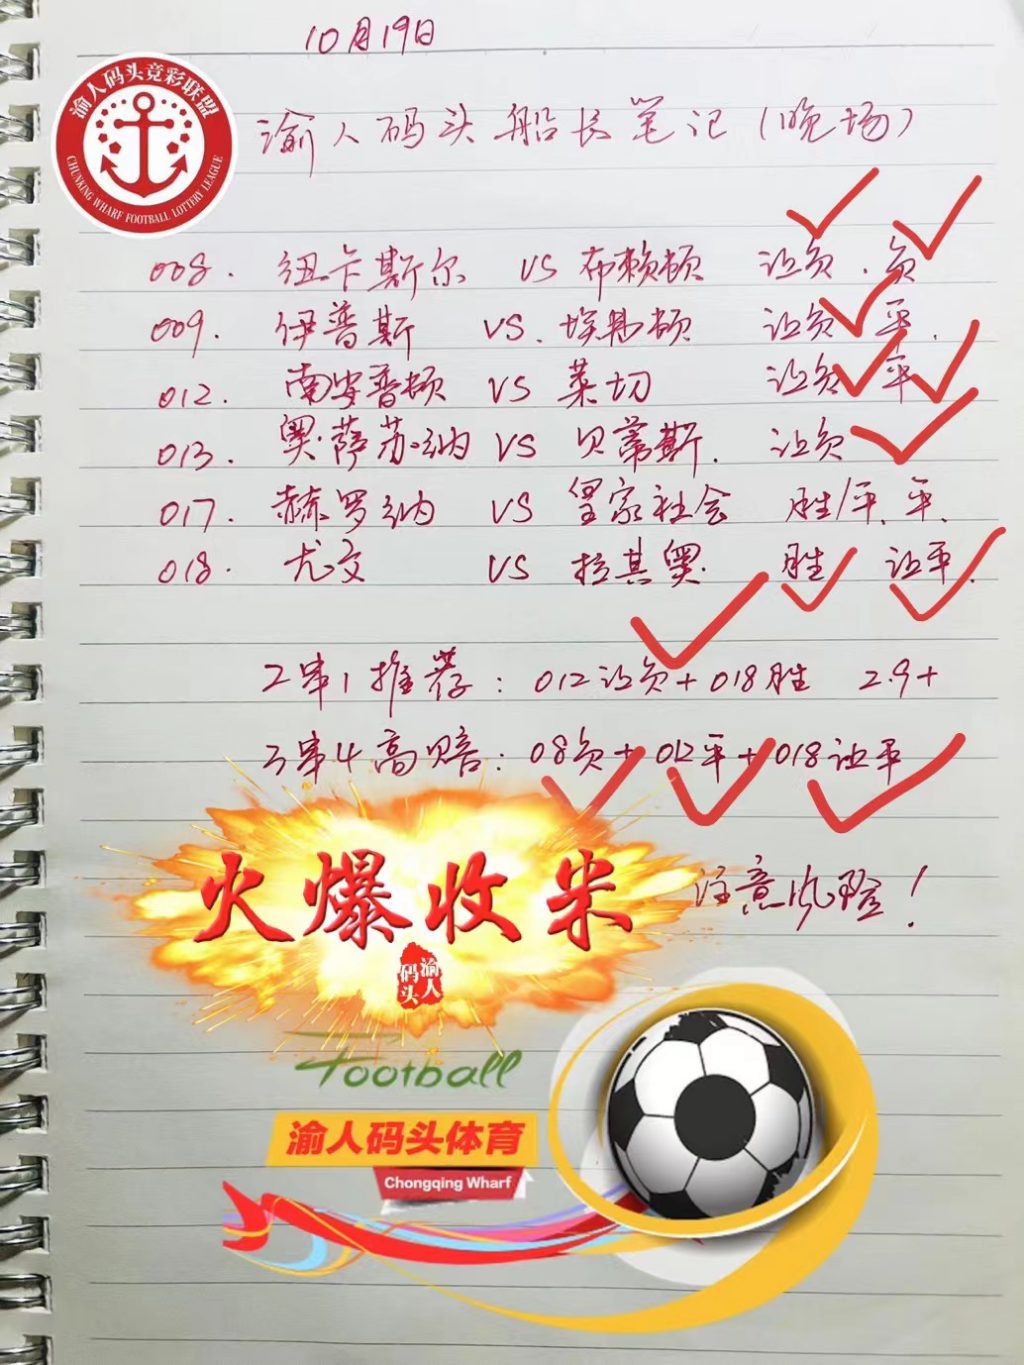 10月19日
渝人码头竞彩联盟
CHUNKING WHARF FOOTBALL LOTTERY LEAGUE
渝人码头船长笔记(晚场)
008. 纽卡斯尔 VS 布赖顿 让负. 负
009. 伊普斯 VS. 埃弗顿 让负 平.
012. 南安普顿 VS 莱切 让负 平
013. 奥萨苏纳 VS 贝蒂斯. 让负
017. 赫罗纳 VS 皇家社会 胜/平. 平.
018. 尤文 VS 拉其奥. 胜 让平.
2串1推荐: 012让负+018胜 2.9+
3串4高赔: 08负+012平+018让平
火爆收米
渝人码头
注意风险!
Football
渝人码头体育
Chongqing Wharf